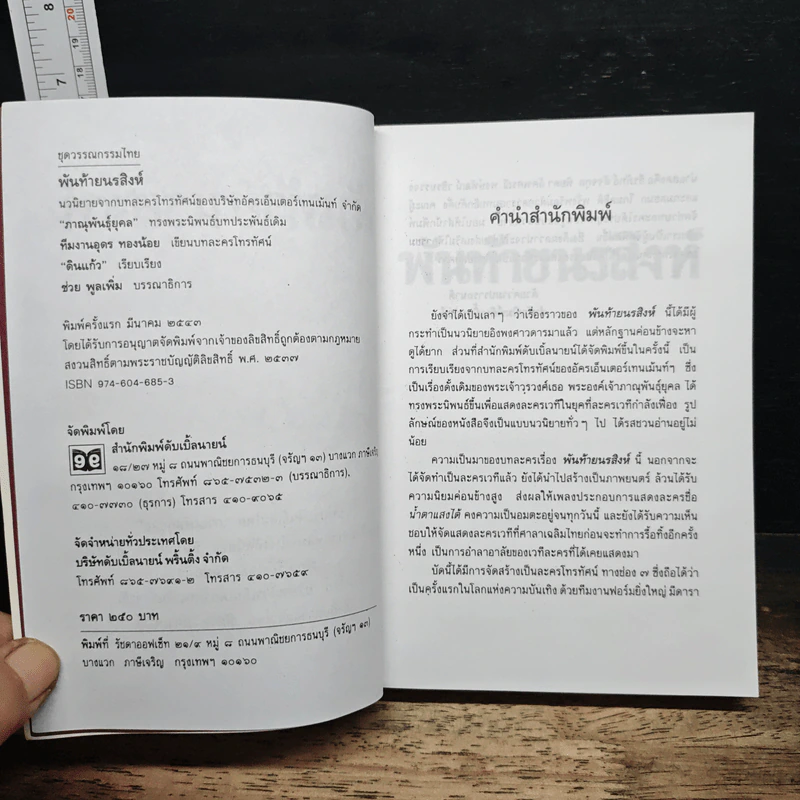 8
7
20
19
18
ชุดวรรณกรรมไทย
พันท้ายนรสิงห์
นวนิยายจากบทละครโทรทัศน์ของบริษัทอัครเอ็นเตอร์เทนเม้นท์ จำกัด
“ภาณุพันธุ์ยุคล” ทรงพระนิพนธ์บทประพันธ์เดิม
ทีมงานอุดร ทองน้อย เขียนบทละครโทรทัศน์
“ดินแก้ว” เรียบเรียง
ช่วย พูลเพิ่ม บรรณาธิการ
พิมพ์ครั้งแรก มีนาคม ๒๕๔๓
โดยได้รับการอนุญาตจัดพิมพ์จากเจ้าของลิขสิทธิ์ถูกต้องตามกฎหมาย
สงวนสิทธิ์ตามพระราชบัญญัติลิขสิทธิ์ พ.ศ. ๒๕๓๗
ISBN 974-604-685-3
จัดพิมพ์โดย
๑๙ สำนักพิมพ์ดับเบิ้ลนายน์
๑๘/๒๗ หมู่ ๘ ถนนพาณิชยการธนบุรี (จรัญฯ ๑๓) บางแวก ภาษีเจริญ
กรุงเทพฯ ๑๐๑๖๐ โทรศัพท์ ๘๖๕-๗๕๓๒-๓ (บรรณาธิการ).
๔๑๐-๗๗๓๐ (ธุรการ) โทรสาร ๔๑๐-๙๐๖๕
จัดจำหน่ายทั่วประเทศโดย
บริษัทดับเบิ้ลนายน์ พริ้นติ้ง จำกัด
โทรศัพท์ ๘๖๕-๗๖๙๑-๒ โทรสาร ๔๑๐-๗๖๕๙
ราคา ๒๔๐ บาท
พิมพ์ที่ รัชดาออฟเซ็ท ๒๑/๙ หมู่ ๘ ถนนพาณิชยการธนบุรี (จรัญฯ ๑๓)
บางแวก ภาษีเจริญ กรุงเทพฯ ๑๐๑๖๐
คำนำสำนักพิมพ์
ยังจำได้เป็นเลาๆ ว่าเรื่องราวของ พันท้ายนรสิงห์ นี้ได้มีผู้
กระทำเป็นนวนิยายอิงพงศาวดารมาแล้ว แต่หลักฐานค่อนข้างจะหา
ดูได้ยาก ส่วนที่สำนักพิมพ์ดับเบิ้ลนายน์ได้จัดพิมพ์ขึ้นในครั้งนี้ เป็น
การเรียบเรียงจากบทละครโทรทัศน์ของอัครเอ็นเตอร์เทนเม้นท์ฯ ซึ่ง
เป็นเรื่องดั้งเดิมของพระเจ้าวรวงศ์เธอ พระองค์เจ้าภาณุพันธุ์ยุคล ได้
ทรงพระนิพนธ์ขึ้นเพื่อแสดงละครเวทีในยุคที่ละครเวทีกำลังเฟื่อง รูป
ลักษณ์ของหนังสือจึงเป็นแบบนวนิยายทั่วๆ ไป ได้รสชวนอ่านอยู่ไม่
น้อย
ความเป็นมาของบทละครเรื่อง พันท้ายนรสิงห์ นี้ นอกจากจะ
ได้จัดทำเป็นละครเวทีแล้ว ยังได้นำไปสร้างเป็นภาพยนตร์ ล้วนได้รับ
ความนิยมค่อนข้างสูง ส่งผลให้เพลงประกอบการแสดงละครชื่อ
น้ำตาแสงไต้ คงความเป็นอมตะอยู่จนทุกวันนี้ และยังได้รับความเห็น
ชอบให้จัดแสดงละครเวทีที่ศาลาเฉลิมไทยก่อนจะทำการรื้อทิ้งอีกครั้ง
หนึ่ง เป็นการอำลาอาลัยของเวทีละครที่ได้เคยแสดงมา
บัดนี้ได้มีการจัดสร้างเป็นละครโทรทัศน์ ทางช่อง ๗ ซึ่งถือได้ว่า
เป็นครั้งแรกในโลกแห่งความบันเทิง ด้วยทีมงานฟอร์มยิ่งใหญ่ มีดารา